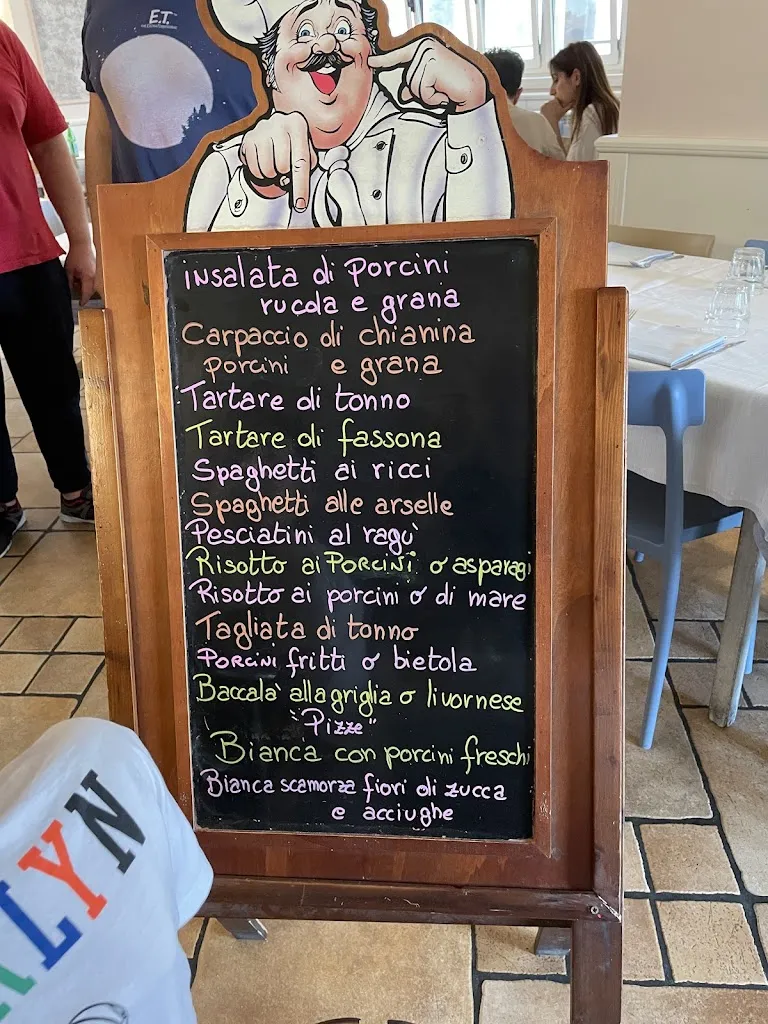 E.T.
insalata di porcini
rucola e grana
Carpaccio di chianina
porcini e grana
Tartare di tonno
Tartare di fassona
Spaghetti ai ricci
Spaghetti alle arselle
Pesciatini al ragù
Risotto ai PORCINI o asparagi
Risotto ai porcini o di mare
Tagliata di tonno
PORCINI fritti o bietola
Baccala' alla griglia o livornese
"Pizze"
Bianca con porcini freschi
Bianca scamorza fiori di zucca
e acciughe
LYN